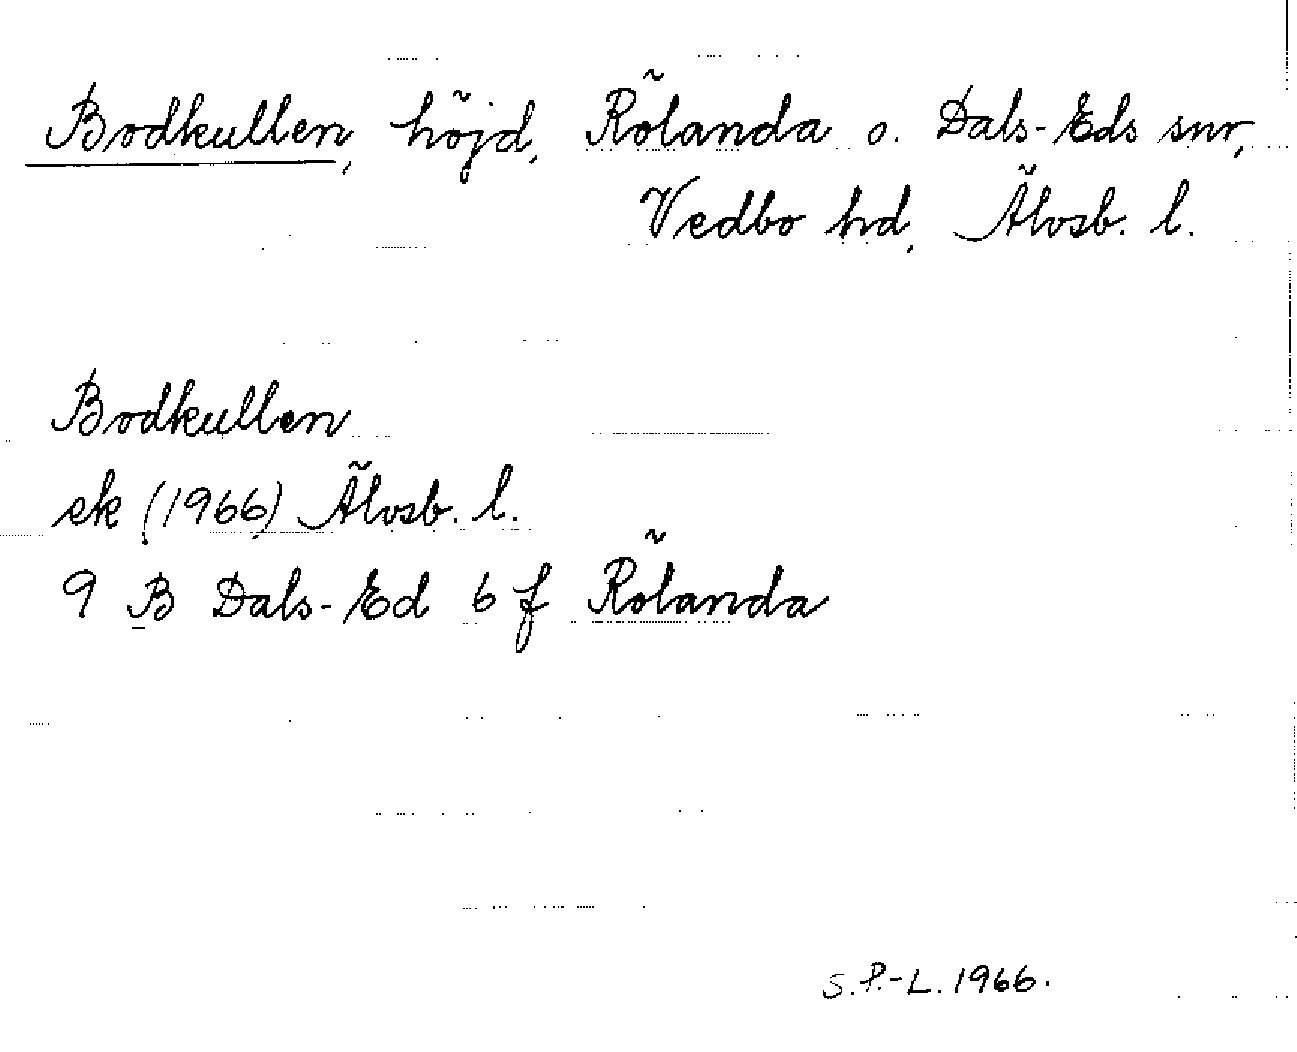 Bodkullen, höjd, Rölanda o. Dals-Eds snr,
Vedbo hd, Älvsb. l.
Bodkullen
ek (1966) Älvsb. l.
9 B Dals-Ed 6 f Rölanda
S.P.-L. 1966.